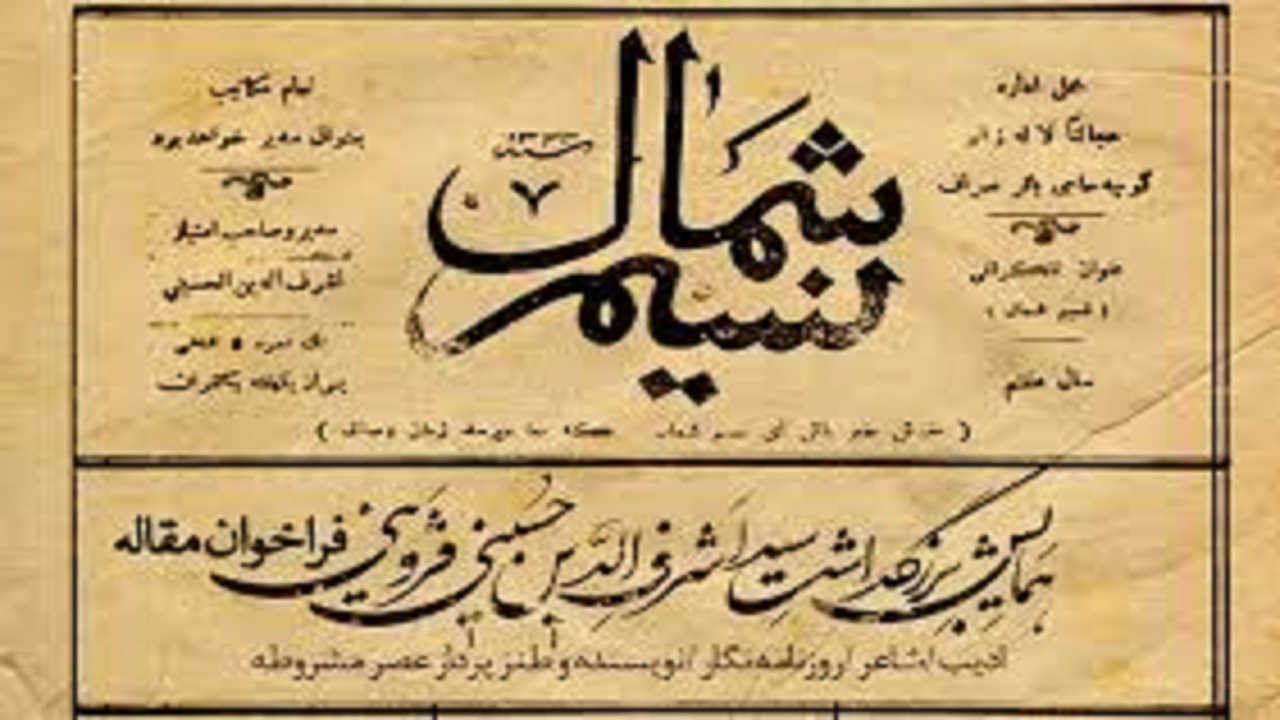 نسیم شمال
سنه ۱۳۳۳
۷
محل اداره
عجالتاً لاله زار
کوچه حاجی باقر صراف
عنوان تلگرافی
( نسیم شمال )
سال هفتم
تمام مکاتیب
بعنوان مدیر خواهد بود
مدیر و صاحب امتیاز
اشرف الدین الحسینی
همایش بزرگداشت سید اشرف الدین حسینی قزوینی فراخوان مقاله
ادیب / شاعر / روزنامه نگار / نویسنده و طنز پرداز عصر مشروطه